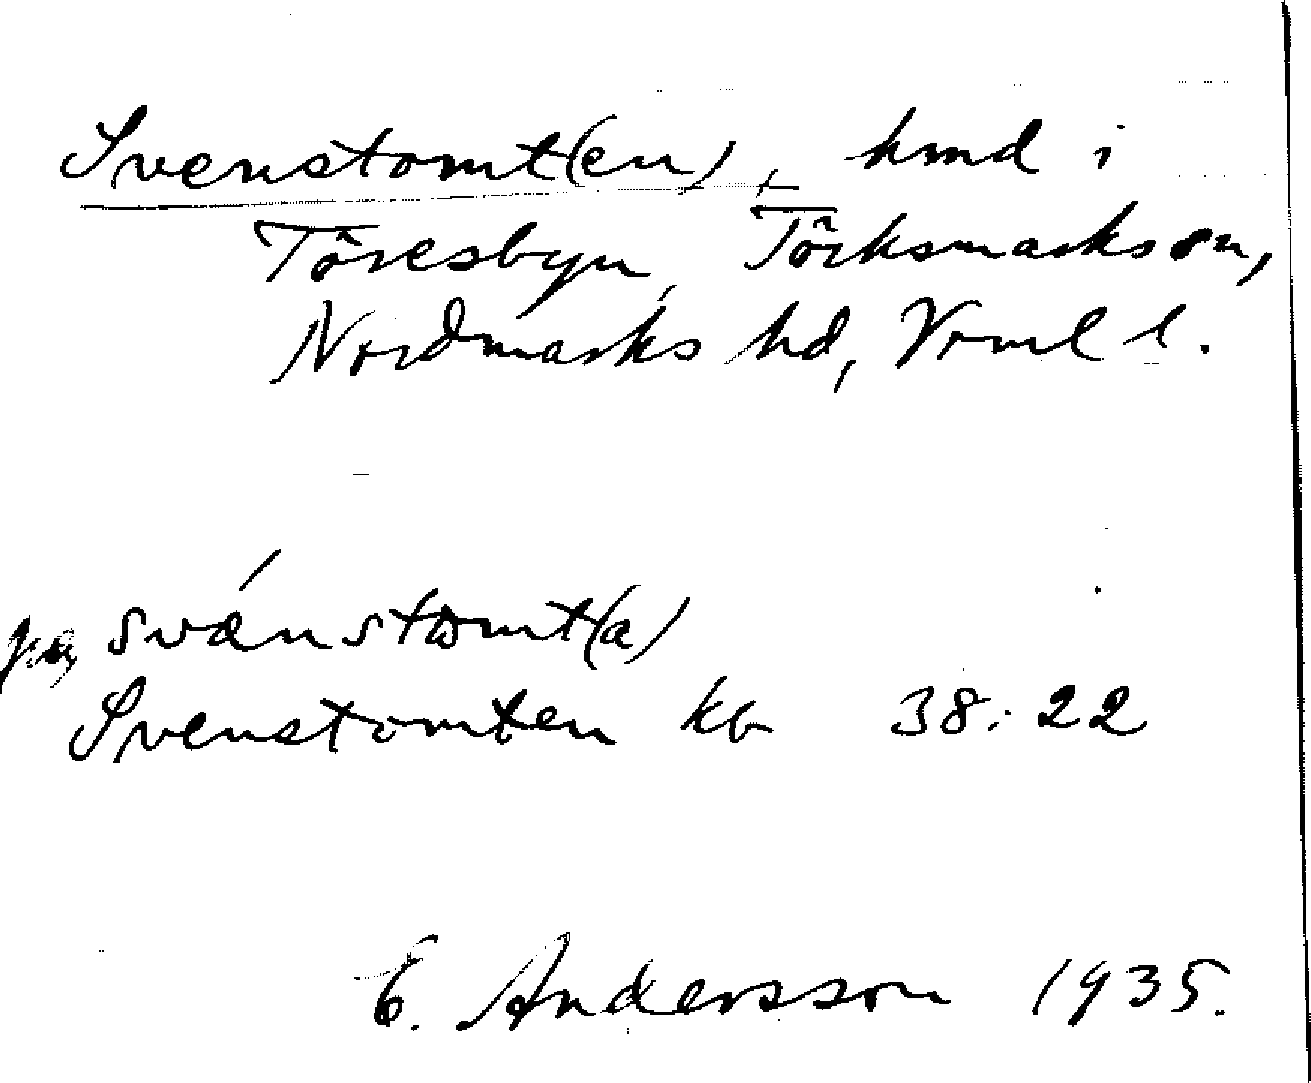 Svenstomt(en), hmd i
Töresbyn, Töcksmarks sn,
Nordmarks hd, Vrml l.
svánstomt(a)
Svenstomten kb 38:22
E. Andersson 1935.